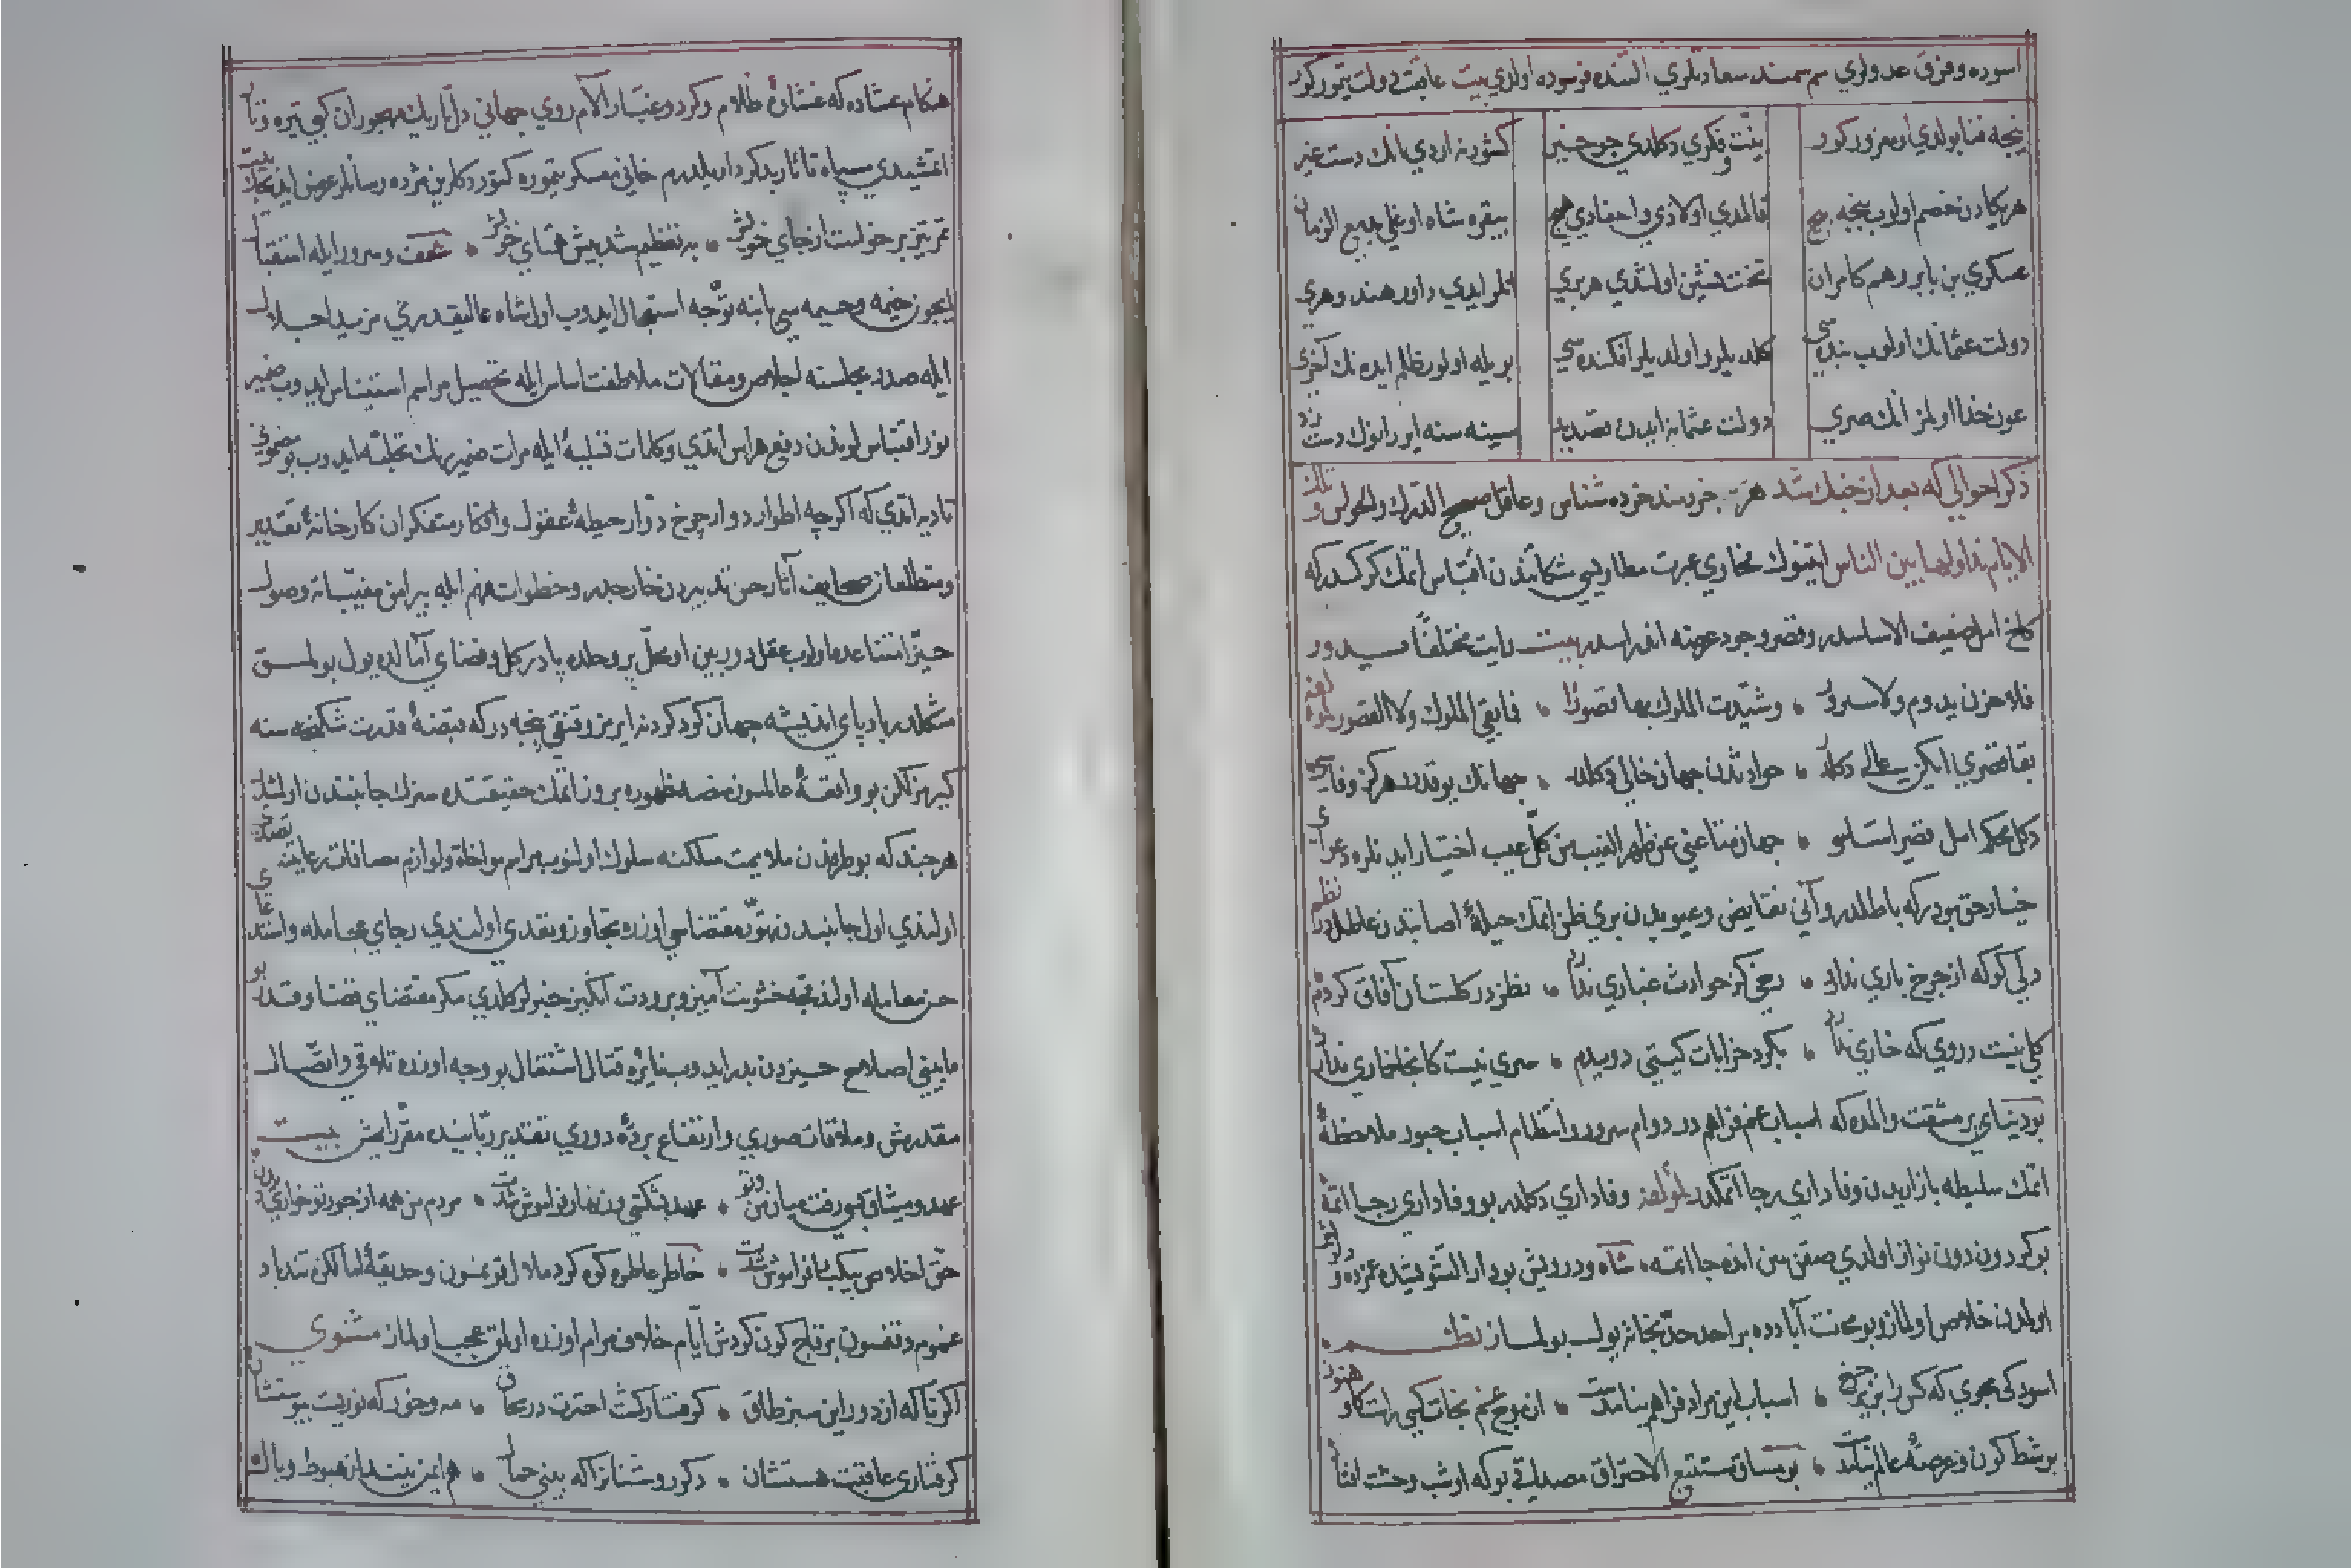 اسوده وفرق عدولري سم سمند سعادتلري التنده فرسوده اولدي بيت عاقبت دولت تيمور كور
نيجه فنا بولدي او مغرور كور
نيت فكري دكلدي چو خير
كشورنه اردي انك دست غير
هر بكادن خصم اولوب نيجه هيچ
قالمدي اولادي واحفادي هيچ
بيقره شاه اوغلي بديع الزمان
عسكري بن بابر وهم كامران
تخت نشين اولمدي هر بري
دلر ايدي داور هند وهري
دولت عثمانك اولوب بنده سي
كلديلر اولديلر افكنده سي
بويله اولور ظلم ايده نك اخري
عون خدا اولمز انك صري
دولت عثمانه ايدن قصد بد
سينه سنه ايرر انوك دست رد
ذكر احوالي كه بعد از جنك شد هر خردمند خرده شناس وعاقل صحيح الدرك والحواس و تلك
الايام نداولها بين الناس ايتنوك مخاري عبرت مطاويسي مشكاتندن اقتباس اتمك كركدركه
كاخ امل ضعيف الاساسدر وقصر وجود عرضه اندراسدر بيت رايت مختلفا يدور
فلا حزن يدوم ولا سرور • وشيدت الملوك بها قصورا • فما بقي الملوك ولا القصور لمؤلفه
بقا قصري ايكن عالي دكلدر • حوادثدن جهان خالي دكلدر • جهانك يوقدر هركز وفاسي
دكل محكم امل قصير اساسي • جهان متاعني عن ظهر الغيب من كل عيب اختيار ايدنلره دعواي
خيار حق بودركه باطلدر وآني نقايض وعيوبدن بري ظن اتمك حيلهٔ اصابتدن عاطلدر نظم
دلي كوكه از چرخ باري ندارد • رخي كز حوادث غباري ندارد • نظر در كلستان آفاق كردم
كلي نيست در وي كه خاري ندارد • بكرد خرابات كيتي دويدم • سري نيست كانجا خماري ندارد
بو دنياي پر مشقت والمده كه اسباب غم فراهمدر دوام سرور وانتظام اسباب حبور ملاحظهٔ
اتمك سليطه بازاريدن وفاداري رجا اتمكدر لمؤلفه وفاداري دكلدر بو وفاداري رجا اتمه
بو كردون دون نواز اولدي صقن سن انده جا اتمه، شاه ودرويش بو دار التشويشده غمزده و
اولمدن خلاص اولماز وبو محنت آباده بر احد حد نجاته يول بولماز نظم
اسودكي مجوي كه كس را بزير چرخ • اسباب اين مراد فراهم نيامدست • از موج غم نجات كسي راست كاو هنوز
بر شط كون وعرصهٔ عالم نيامدست • بو مساق مستتبع الاحتراق مصداقي بو كه او شب وحشت
هنكام عشاده كه غشاوهٔ ظلام وكرد وغبار آلام روي جهاني دل تاريك مهجوران كبي تيره و
اتمشيدي سپاه تاتار بدكردار يلدرم خاني معسكر تيموره كتوردكلرين مژده رسانلر عرض ايدنجك بيت
تمر نيز برخواست از جاي خويش • به تعظيم شد پيش همتاي خويش • شعف وسرور ايله استقبال
ايچون خيمه وحيمه سي بابنه توجه استعجال ايدوب اول شاه عاليقدري مزيد اجلال
ايله صدر مجلسنه اجلاس ومقالات ملاطفت اساس ايله تحصيل مراسم استيناس ايدوب ضمير
نور اقتباس لريندن دفع هراس اتدي وكلمات قلبيهٔ ايله مرات ضميرينك تجليه ايدوب بو مضموني
تاديه اتدي كه اكرچه اطوار دوار چرخ دوار حيطهٔ عقول وافكار متفكران كارخانهٔ تقدير
ومتطلعان صحايف آثار حسن تدبيردن خارجدر وخطوات فهم ايله پيرامن مغيباته وصول
حيز امتناعده اولوب عقل دوربين اوحل پر وحلده پا در كل وفضاي آمالده يول بولمق
مشكلدر باد پاي انديشه جهان كرد كردنه ايرمز وقنقي پنجه دركه قبضهٔ قدرت شكنجه سنه
كيرمز لكن بو واقعهٔ هالسون منصه ظهوره بروز اتمك حقيقتده سزك جانبندن اولمشدر
هرچندكه بو طرفدن ملايمت مسلكنه سلوك اولنوب مراسم مواخاة ولوازم مصافات رعايتنه تصدي
اولندي اول جانبدن تهور مقتضاسي اوزره تجاوز وتعدي اولندي رجاي مجامله واستدعاي
حسن معامله اولندقجه خشونت آميز وبرودت آنكيز خبرلر كلدي مكر مقتضاي قضا وقدر بو
مابيني اصلاح حيزدن بدر ايدوب نايرهٔ قتال اشتعال بو وجه اوزره تلاقي واتصال
مقدرمش وملاقات صوري وارتفاع پردهٔ دوري تقدير ربانيده مقررايمش بيت
عهد وميثاق كه رفت ميان من وتو • عهد بشكستي وزنهار فراموش شدت • مردم من همه از جور تو خاري
حق اخلاص بيكباره فراموش شدت • خاطر عاطره كوه كرد ملال قونمسون وحديقهٔ آمالكزه تندباد
غموم وقنسون بر قاج كون كردش ايام خلاف مرام اوزره اولمق عجب اولماز مثنوي
اكر ناكه از دور اين سبز طاق • كرفتار كشت اخترت در محاق • مه وخور كه نوريت پيوستشان
كرفتاري عاقبت هستشان • دكر روشنانرا كه بيني جمال • هم ايمن نيند از هبوط ووبال